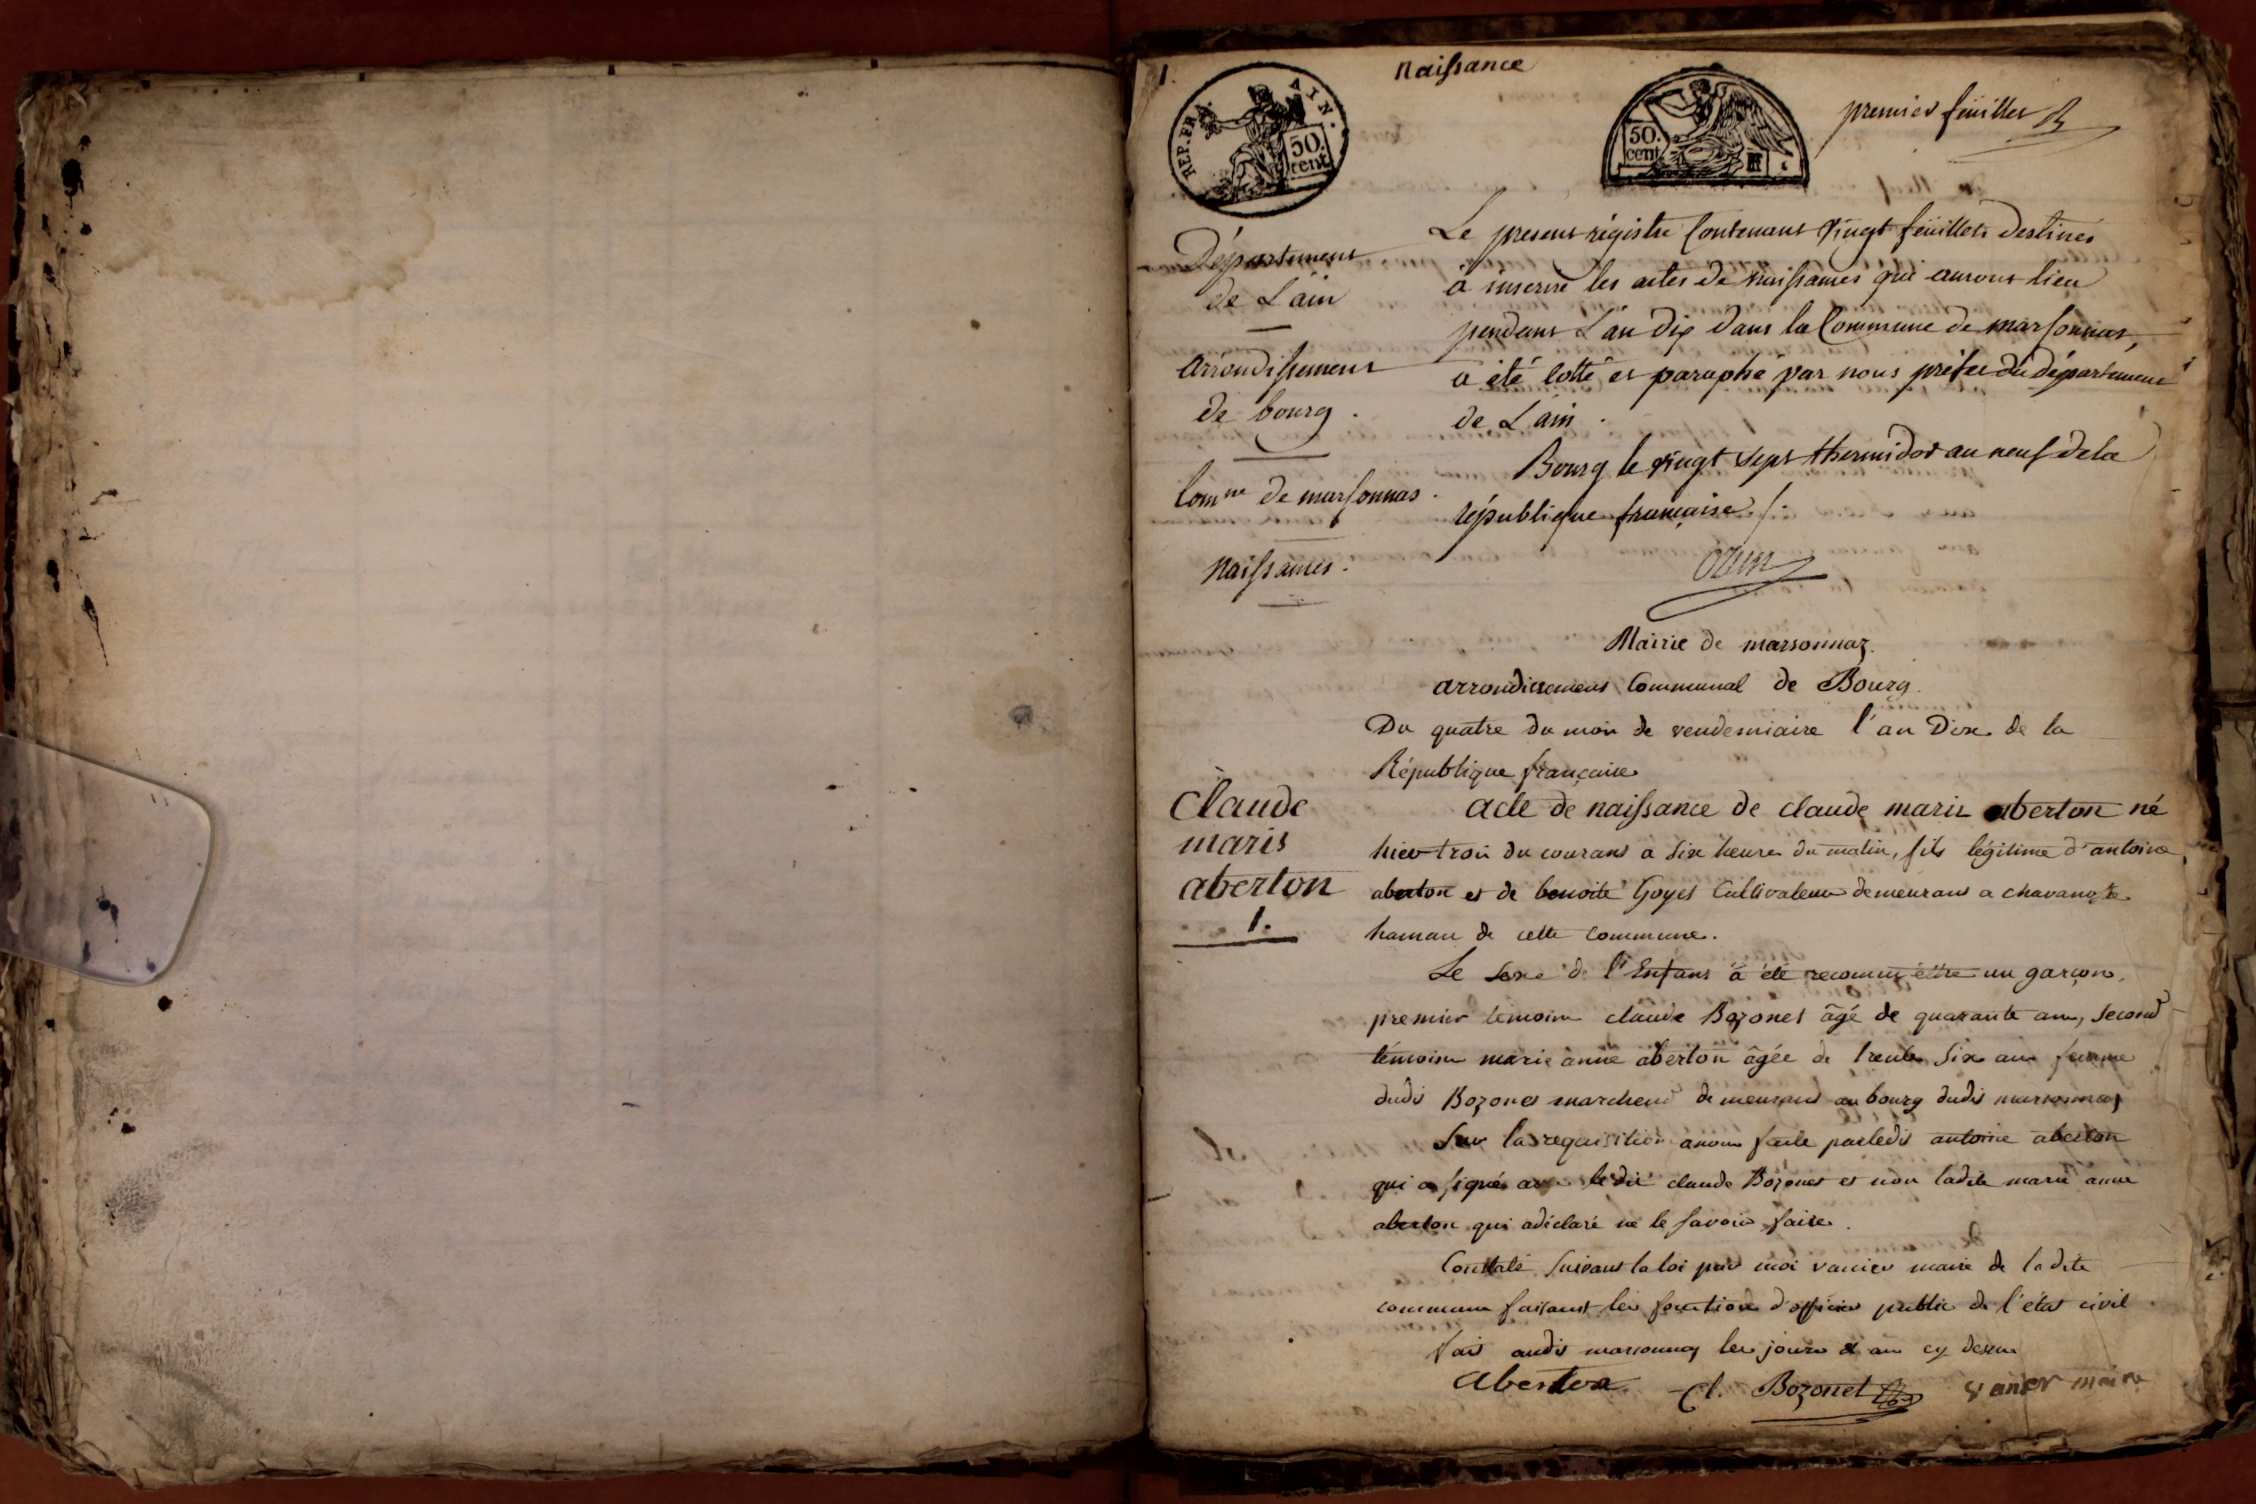 1.
Naissance
REP. FRA. AIN.
50.
cent
50.
cent
premier feuillet
Département
de L'ain
arrondissement
de bourg.
Comne de marsonnas.
Naissances.
Le present régistre Contenant vingt feuillets destinés
à inscrire les actes de naissances qui auront lieu
pendant L'an dix dans la Commune de marsonnas,
a été cotté et paraphé par nous préfet du département
de L'ain.
Bourg le vingt sept thermidor an neuf de la
république française /.
ozun
Mairie de marsonnaz.
arrondissement Communal de Bourg.
Du quatre du mois de vendemiaire l'an Dix de la
République française
Claude
maris
aberton
1.
acte de naissance de claude maris aberton né
hier trois du courant a six heure du matin, fils légitime d'antoine
aberton et de benoite Goyet Cultivateur demeurant a chavanoste
hamau de cette commune.
Le sexe de l'Enfant à été reconnu être un garçon,
premier temoin claude Bozonet âgé de quarante ans, second
témoin marie anne aberton âgée de trente six ans femme
dudit Bozonet marchend demeurant au bourg dudit marsonnaz
Sur la requisition anous faite par ledit antoine aberton
qui a signé avec ledit claude Bozonet et non ladite marie anne
aberton qui a déclaré ne le savoir faire.
Constaté suivant la loi par moi vanier maire de ladite
commune faisant les fonction d'officier public de l'état civil
fait audit marsonnaz les jours et an cy dessus
Aberton Cl. Bozonet vanier maire